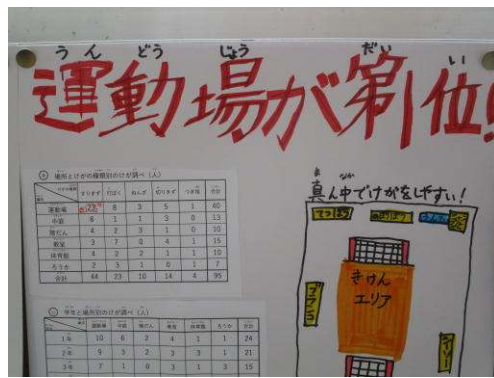 うん どう じょう だい い
運動場が第1位!
場所とけがの種類別のけが調べ(人)
すりきず 打ぼく ねんざ 切りきず つき指 合計
運動場 8 3 5 1 40
中庭 8 1 1 3 0 13
階だん 4 2 3 1 0 10
教室 3 7 0 4 1 15
体育館 4 2 2 1 1 10
ろうか 2 3 1 0 1 7
合計 44 23 10 14 4 95
学年と場所別のけが調べ(人)
運動場 中庭 階だん 教室 体育館 ろうか 合計
1年 10 6 2 4 1 1 24
2年 9 3 2 3 3 1 21
3年 7 1 0 3 1 3 15
ま なか
真ん中でけがをしやすい!
てつぼう のぼりぼう
きけん
エリア
ブランコ
シーソー